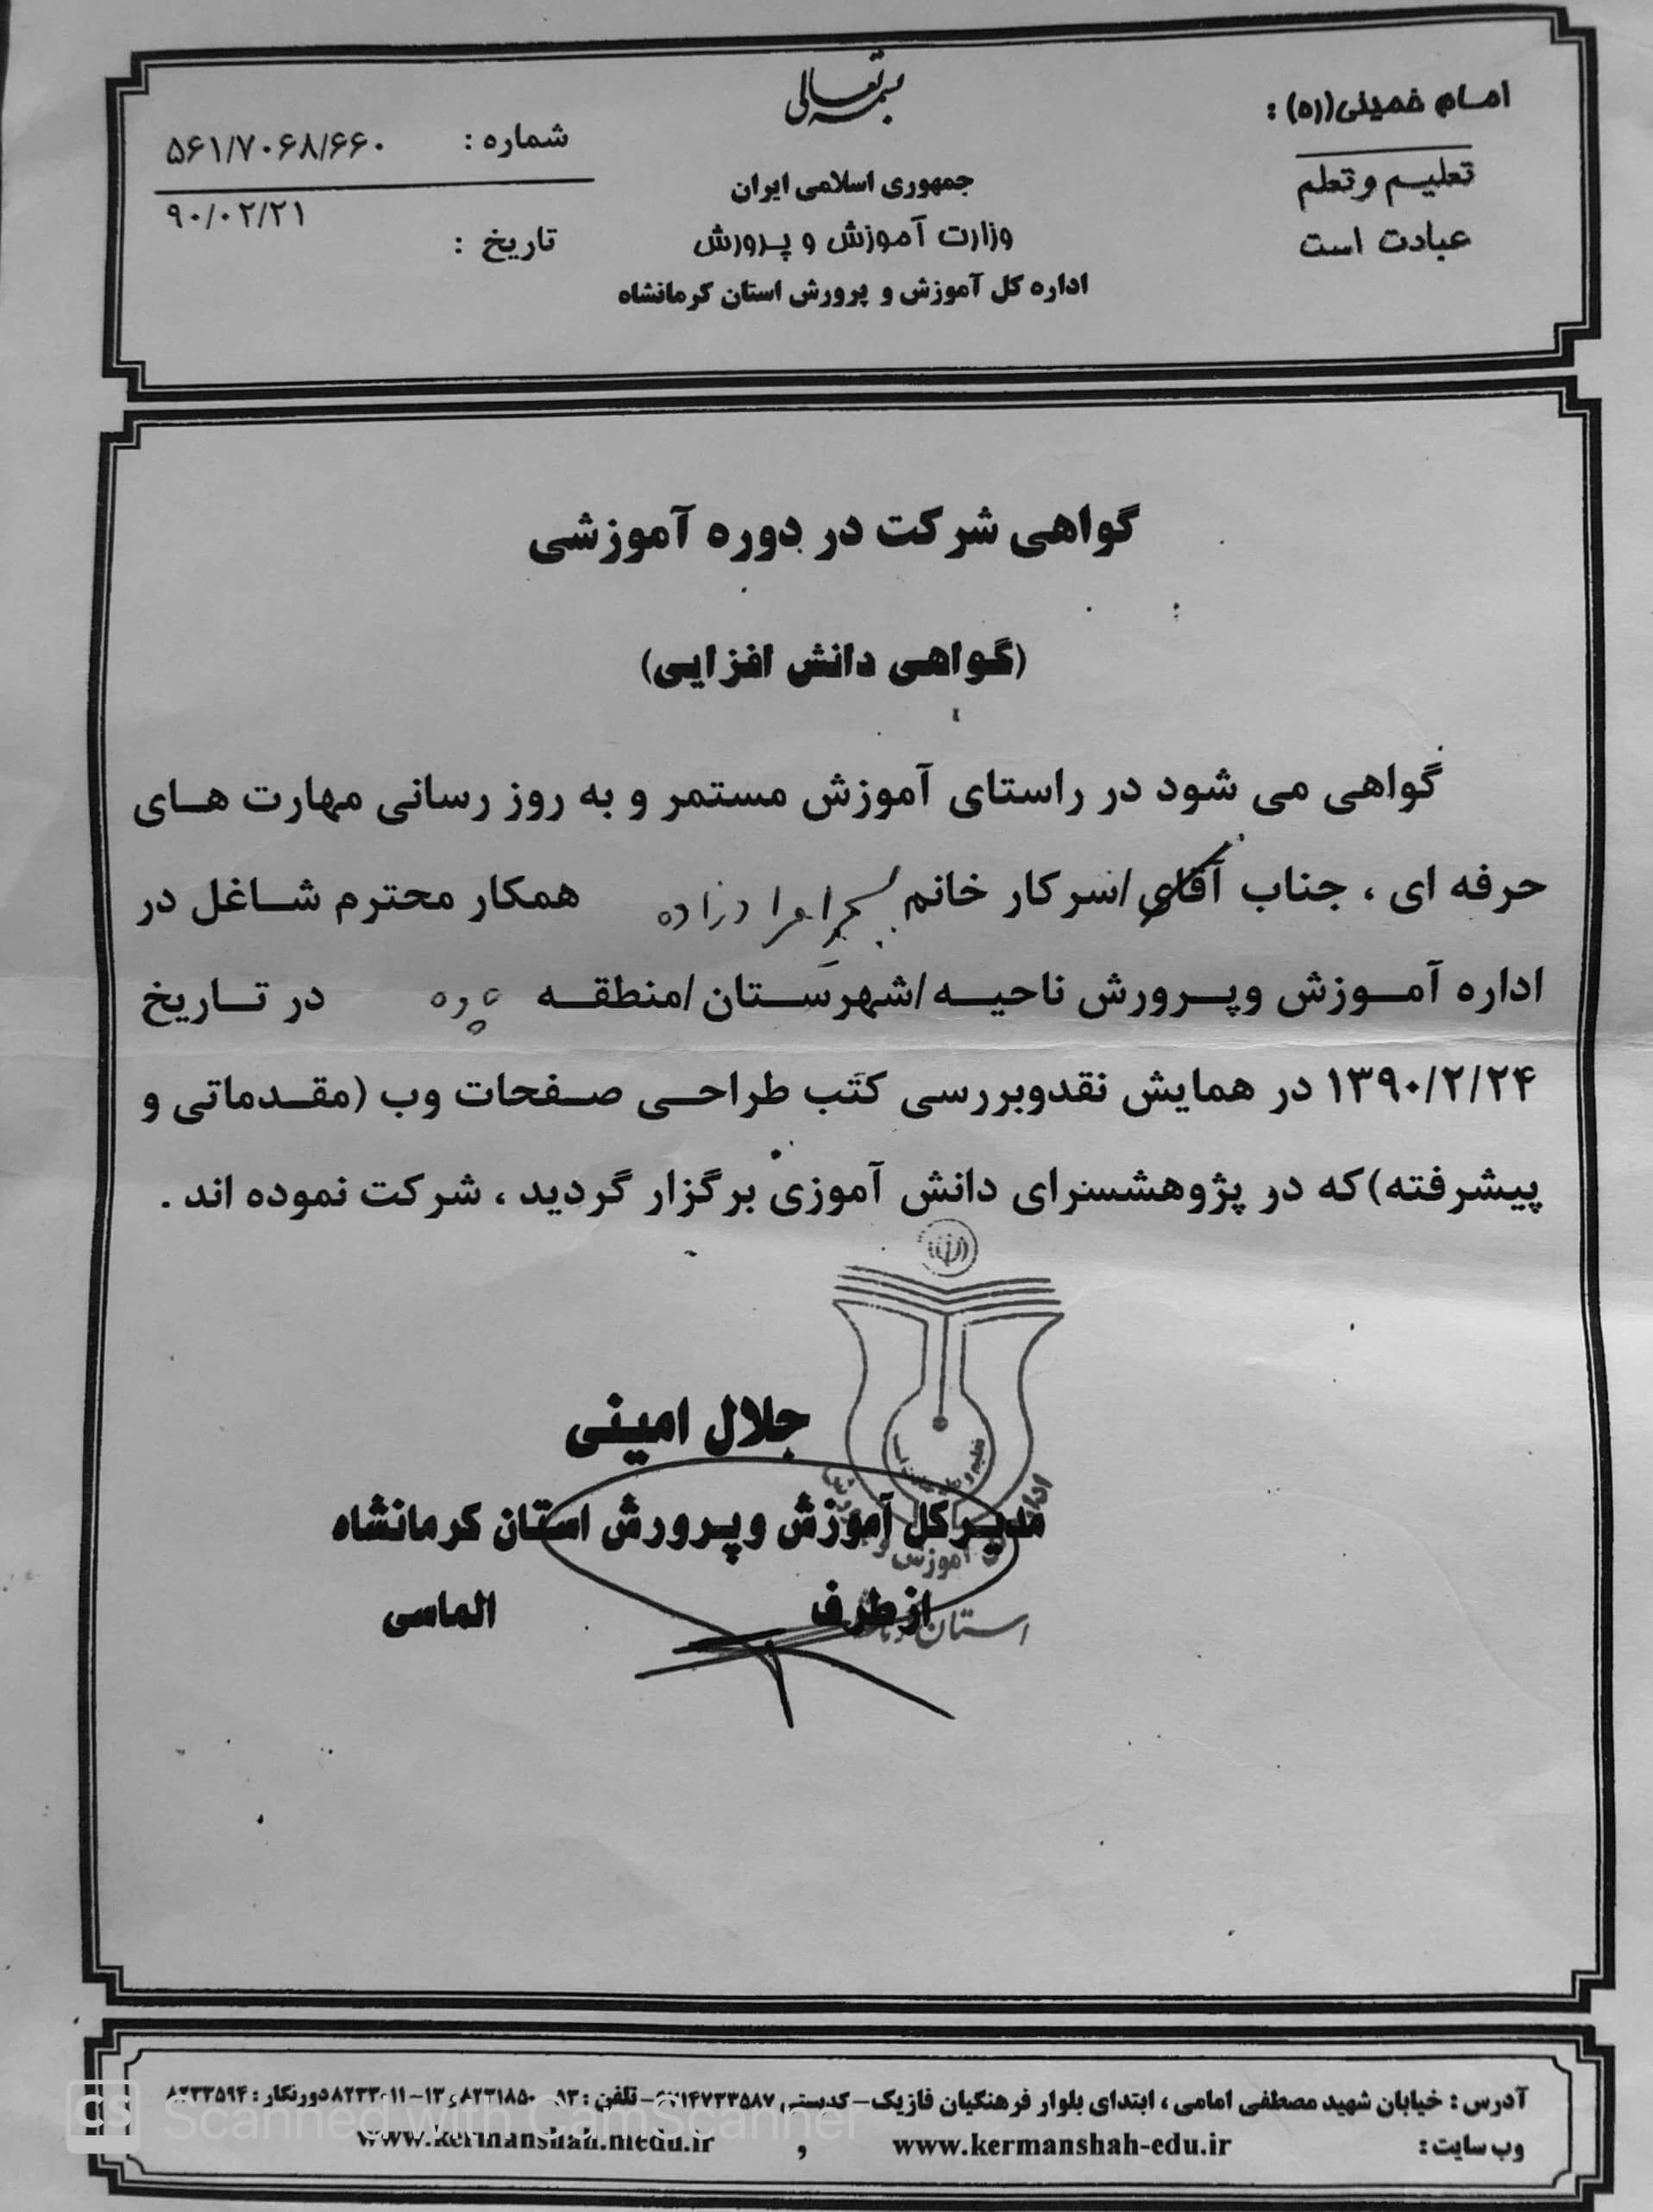 بسمه تعالی
امام خمینی(ره) :
تعلیم و تعلم
عبادت است
جمهوری اسلامی ایران
وزارت آموزش و پرورش
اداره کل آموزش و پرورش استان کرمانشاه
شماره : ۵۶۱/۷۰۶۸/۶۶۰
تاریخ : ۹۰/۰۲/۲۱
گواهی شرکت در دوره آموزشی
(گواهی دانش افزایی)
گواهی می شود در راستای آموزش مستمر و به روز رسانی مهارت های
حرفه ای ، جناب آقای/سرکار خانم همکار محترم شاغل در
اداره آموزش وپرورش ناحیه/شهرستان/منطقه در تاریخ
۱۳۹۰/۲/۲۴ در همایش نقدوبررسی کتب طراحی صفحات وب (مقدماتی و
پیشرفته)که در پژوهشسرای دانش آموزی برگزار گردید ، شرکت نموده اند .
جلال امینی
مدیرکل آموزش وپرورش استان کرمانشاه
ازطرف الماسی
آدرس : خیابان شهید مصطفی امامی ، ابتدای بلوار فرهنگیان فازیک – کدپستی – تلفن : دورنگار : ۸۲۳۳۵۹۴
وب سایت : www.kermanshah-edu.ir , www.kermanshah.medu.ir
CS Scanned with CamScanner